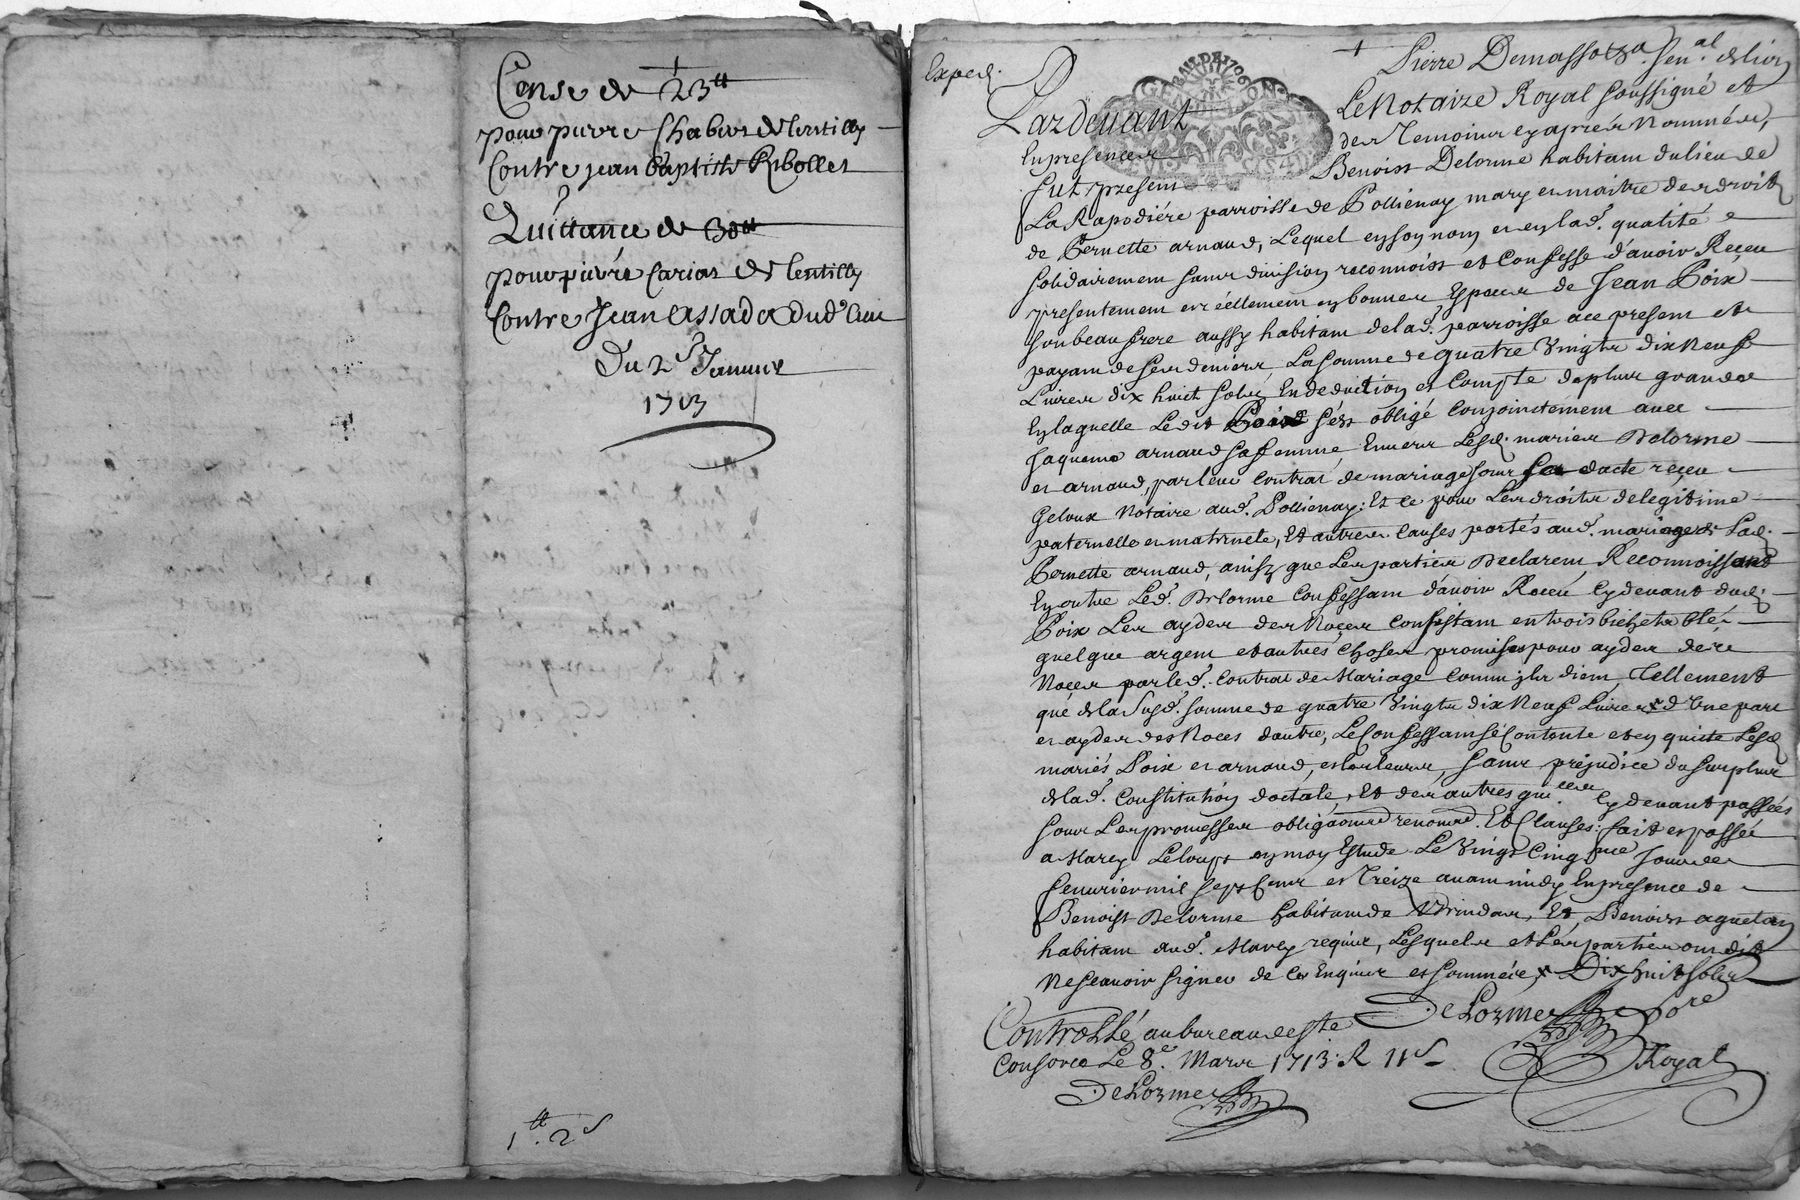 Cense de 23tt
pour pierre Chabert de lentilly
Contre jean baptiste Ribollet
Quittance de 30tt
pour pierre Carias de lentilly
Contre Jean assada dud. lieu
Du 2e Januier
1713
1tt. 2s
Exped.
Pierre Demasso sen.al de lion
GN. RAL. DE 1706 LION
Pardeuant Le Notaire Royal soussigné et
En presences des Temoins cy apres Nommées,
fut present Benoist Delorme habitant du lieu de
La Rapodiére parroisse de Pollienay mary et maitre des droits
de Pernette arnaud, Lequel en son nom et en lad. qualité
solidairement sans diuision reconnoist et Confesse d'auoir Receu
presentement et réellement en bonnes Especes de Jean Poix
son beau frere aussy habitant de lad. parroisse ace present et
payant de ses deniers La somme de quatre Vingts dix Neuf
Liures dix huict sols, En deduction et Compte de plus grande
En laquelle Ledit Poix s'est obligé Conjoinctement auec
Jaquemo arnaud sa femme Enuers Lesd. mariés Delorme
et arnaud, par leur Contrat de mariage sous sa dacte receu
Geloux Notaire aud. Pollienay: Et ce pour Les droits de legitime
paternelle et maternele, Et autres Causes portés aud. mariage de Lad.
Pernette arnaud, ainsy que Les parties Declarent, Reconnoissant
En outre Led. Delorme Confessant d'auoir Receu Cy deuant dud.
Poix Les aydes des Noces Consistant en trois bichets blé
quelque argent et autres choses promises pour aydes de
Noces par led. Contrat de Mariage Comme ils dient, Tellement
que de la Susd. somme de quatre Vingts dix Neuf Liures x d'Une part
et aydes des Noces d'autre, Le Confessant se Contente et en quitte Lesd
mariés Poix et arnaud, et les leurs, sans préjudice du surplus
de lad. Constitution doctale, Et des autres quices Cy deuant passées
sous Les promesses obligaons renonad. Et Clauses: fait et passé
a Marcy Le loup en mon Estude Le Vingt Cinqme Jour de
feurier mil sept Cent et Treize auant midy En presence de
Benoist Delorme habitant de Vrindas, Et Benoist agnetan
habitant aud. Marcy requis, Lesquels et Les parties ont dit
Ne scauoir signer de Ce Enquis et sommés x Dix huit sols
DeLorme Nore
Royal
Controllé au bureau de Ste
Consorce Le 8e. Mars 1713. R 11s
DeLorme